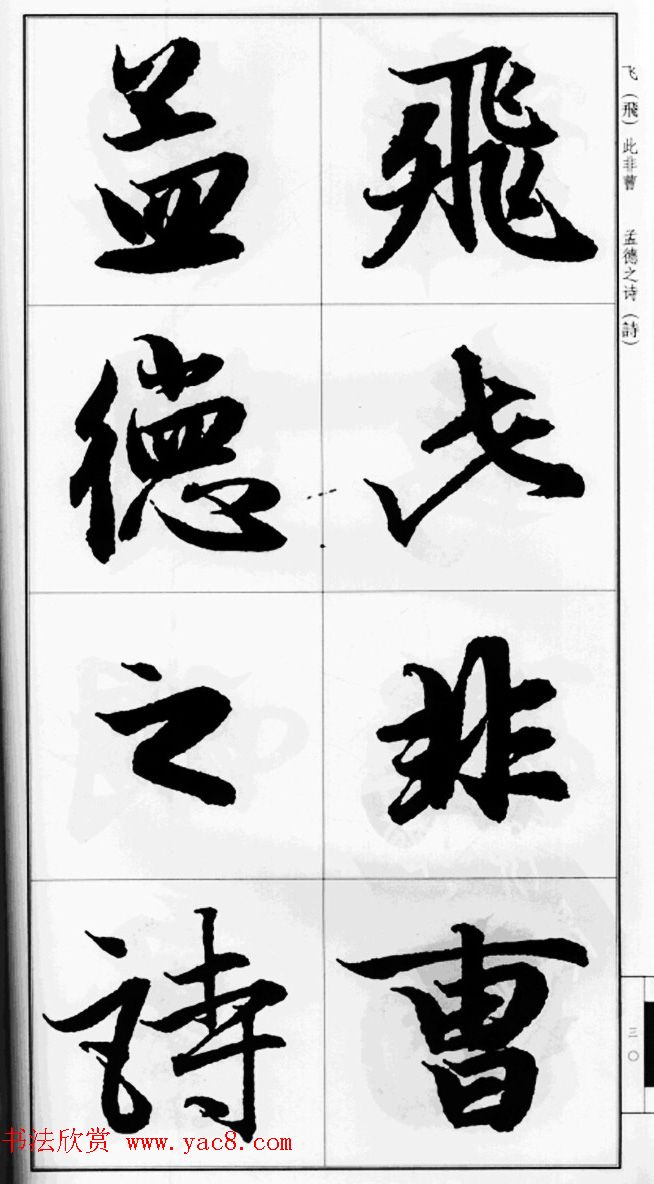 飛此非曹
孟德之詩
飞（飛）此非曹　孟德之诗（詩）
三〇
书法欣赏 www.yac8.com